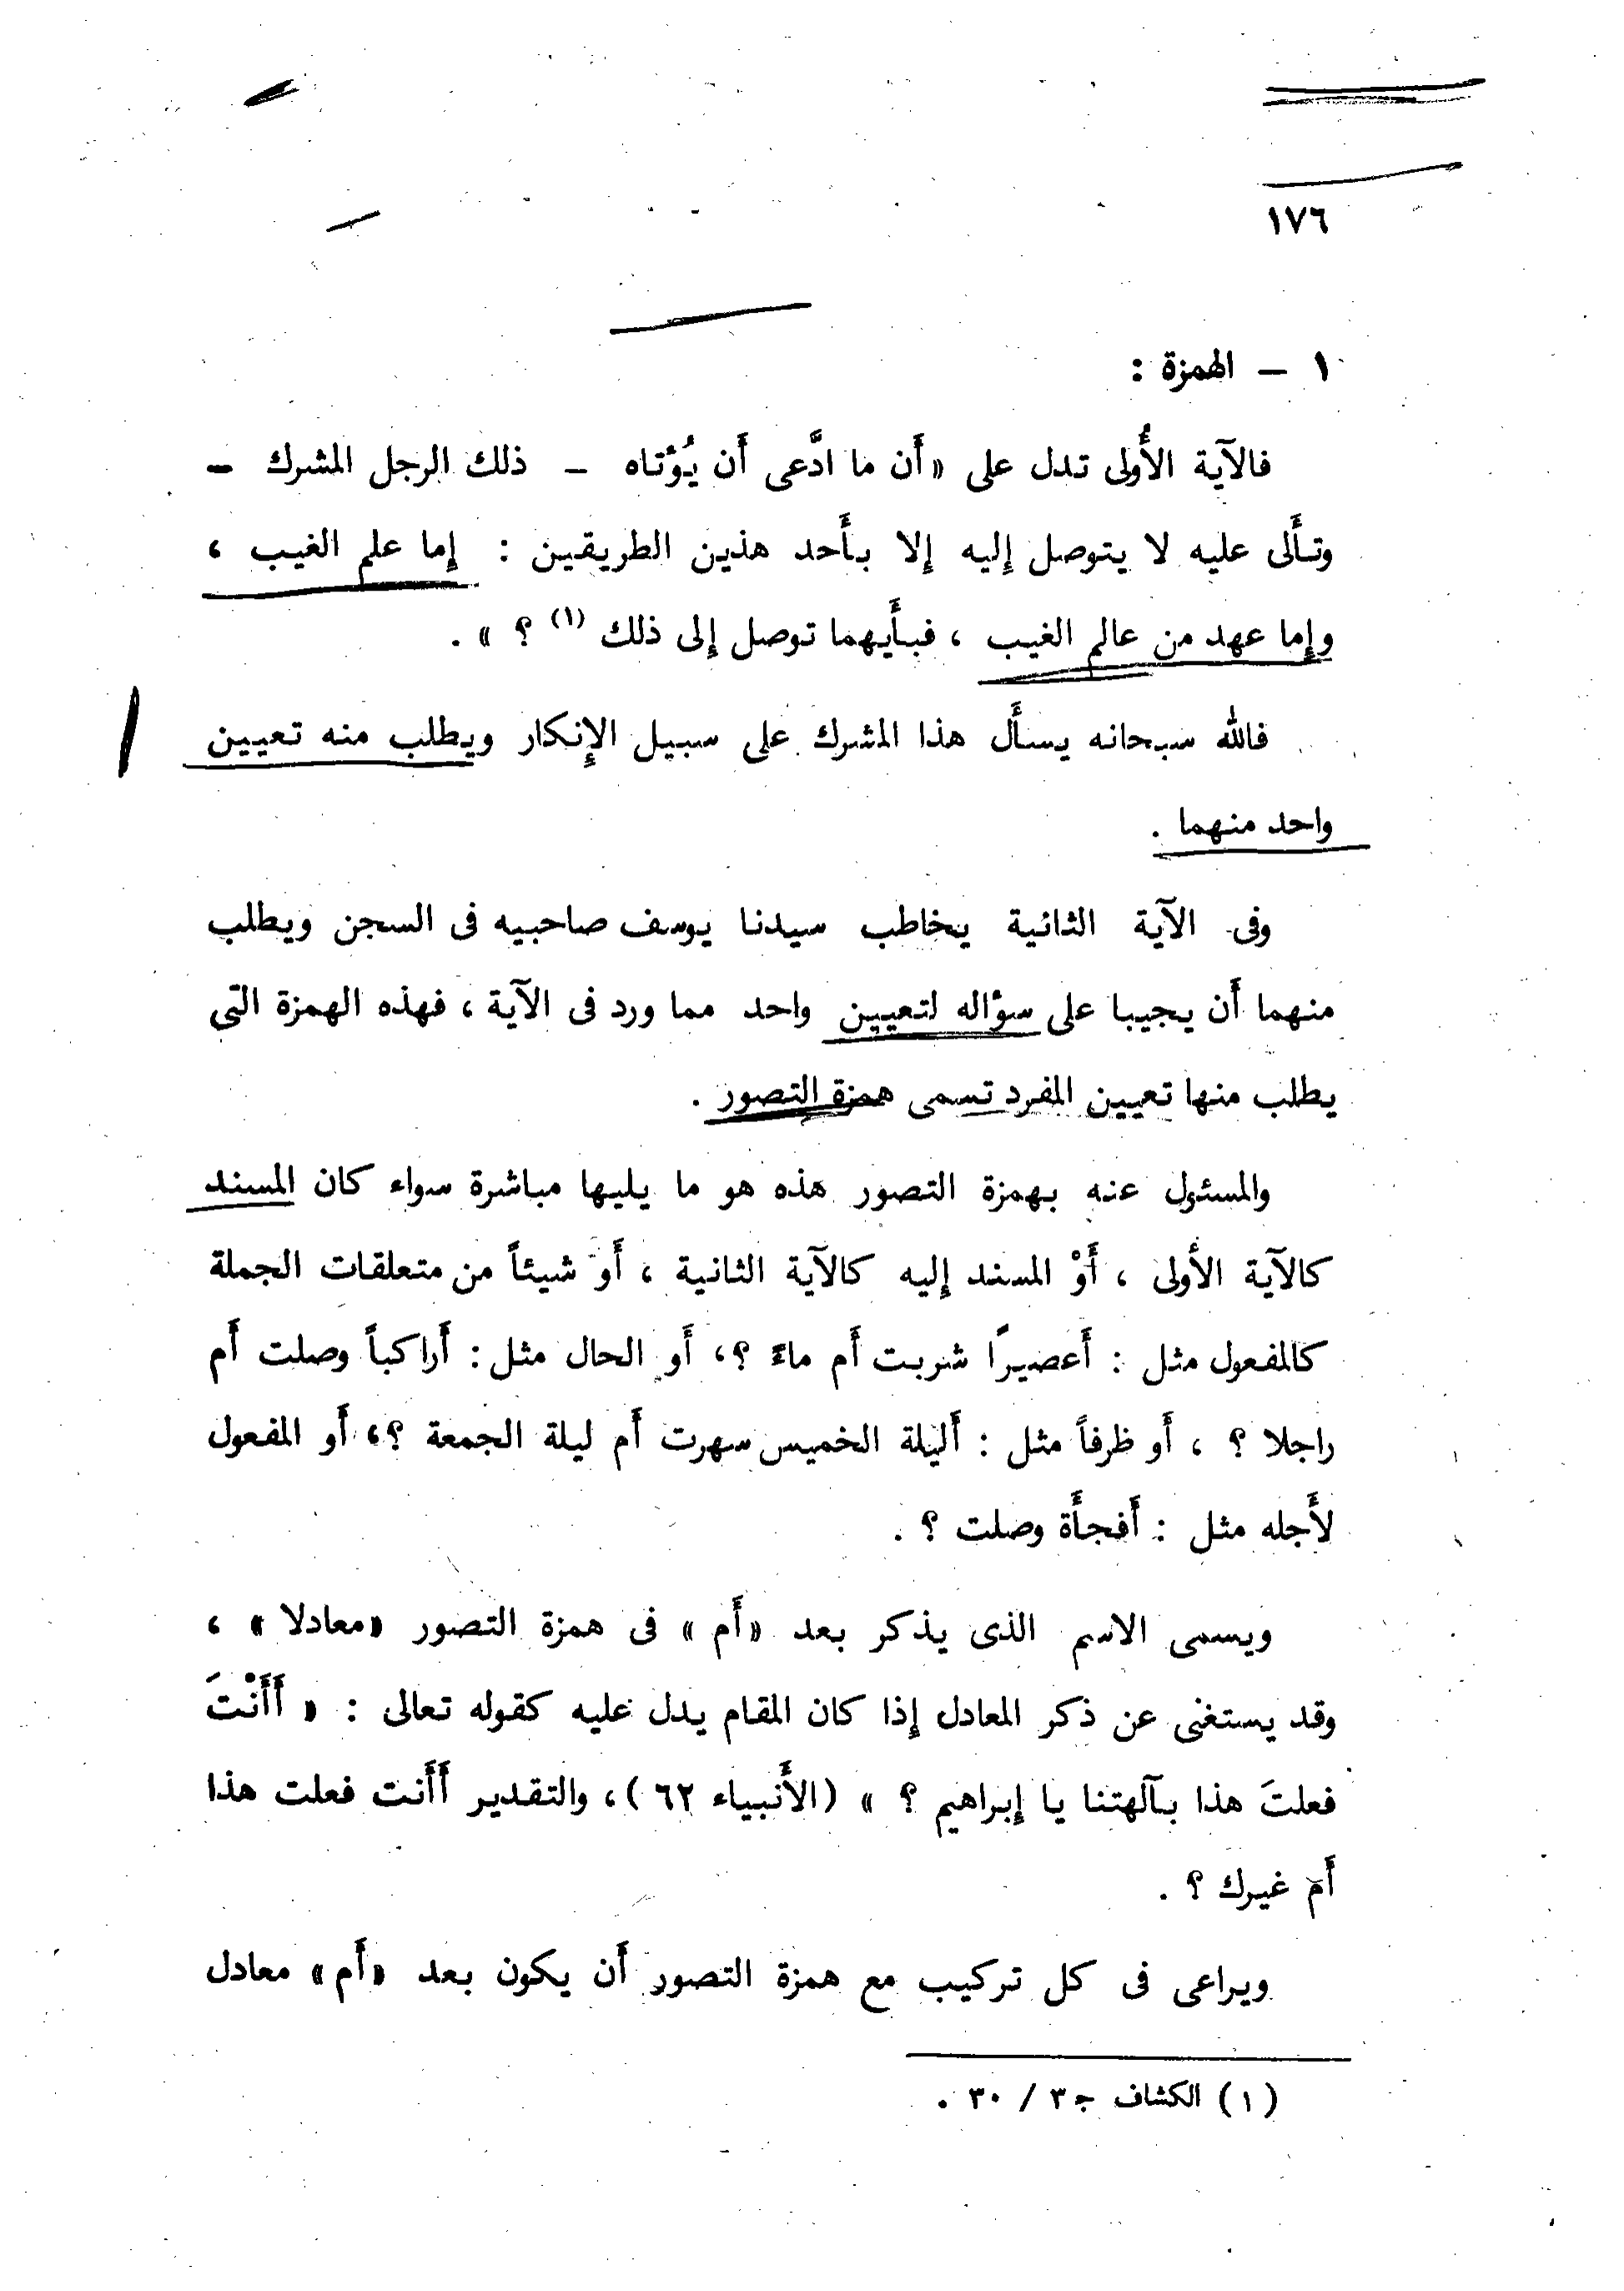 ١٧٦
١ – الهمزة :
فالآية الأُولى تدل على « أَن ما ادَّعى أَن يُؤتاه – ذلك الرجل المشرك –
وتأَلى عليه لا يتوصل إليه إلا بأَحد هذين الطريقين : إما علم الغيب ،
وإما عهد من عالم الغيب ، فبأَيهما توصل إلى ذلك (١) ؟ » .
فالله سبحانه يسأَل هذا المشرك على سبيل الإنكار ويطلب منه تعيين
واحد منهما .
وفى الآية الثانية يخاطب سيدنا يوسف صاحبيه فى السجن ويطلب
منهما أَن يجيبا على سؤاله لتعيين واحد مما ورد فى الآية ، فهذه الهمزة التي
يطلب منها تعيين المفرد تسمى همزة التصور .
والمسئول عنه بهمزة التصور هذه هو ما يليها مباشرة سواء كان المسند
كالآية الأولى ، أَوْ المسند إليه كالآية الثانية ، أَو شيئاً من متعلقات الجملة
كالمفعول مثل : أَعصيرًا شربت أَم ماءً ؟، أَو الحال مثل : أَراكباً وصلت أَم
راجلا ؟ ، أَو ظرفاً مثل : أَليلة الخميس سهرت أَم ليلة الجمعة ؟، أَو المفعول
لأَجله مثل : أَفجأَة وصلت ؟ .
ويسمى الاسم الذى يذكر بعد «أَم» فى همزة التصور «معادلا» ،
وقد يستغنى عن ذكر المعادل إذا كان المقام يدل عليه كقوله تعالى : « أَأَنْتَ
فعلتَ هذا بآلهتنا يا إبراهيم ؟ » (الأَنبياء ٦٢)، والتقدير أَأَنت فعلت هذا
أَم غيرك ؟ .
ويراعى فى كل تركيب مع همزة التصور أَن يكون بعد «أَم» معادل
(١) الكشاف ج٣ / ٣٠ .